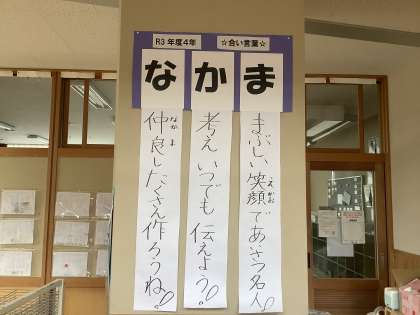 R3 年度4年
☆合い言葉☆
なかま
仲良したくさん作ろうね!!
なかま
考えいつでも伝えよう!!
まぶしい笑顔であいさつ名人!!
えがお